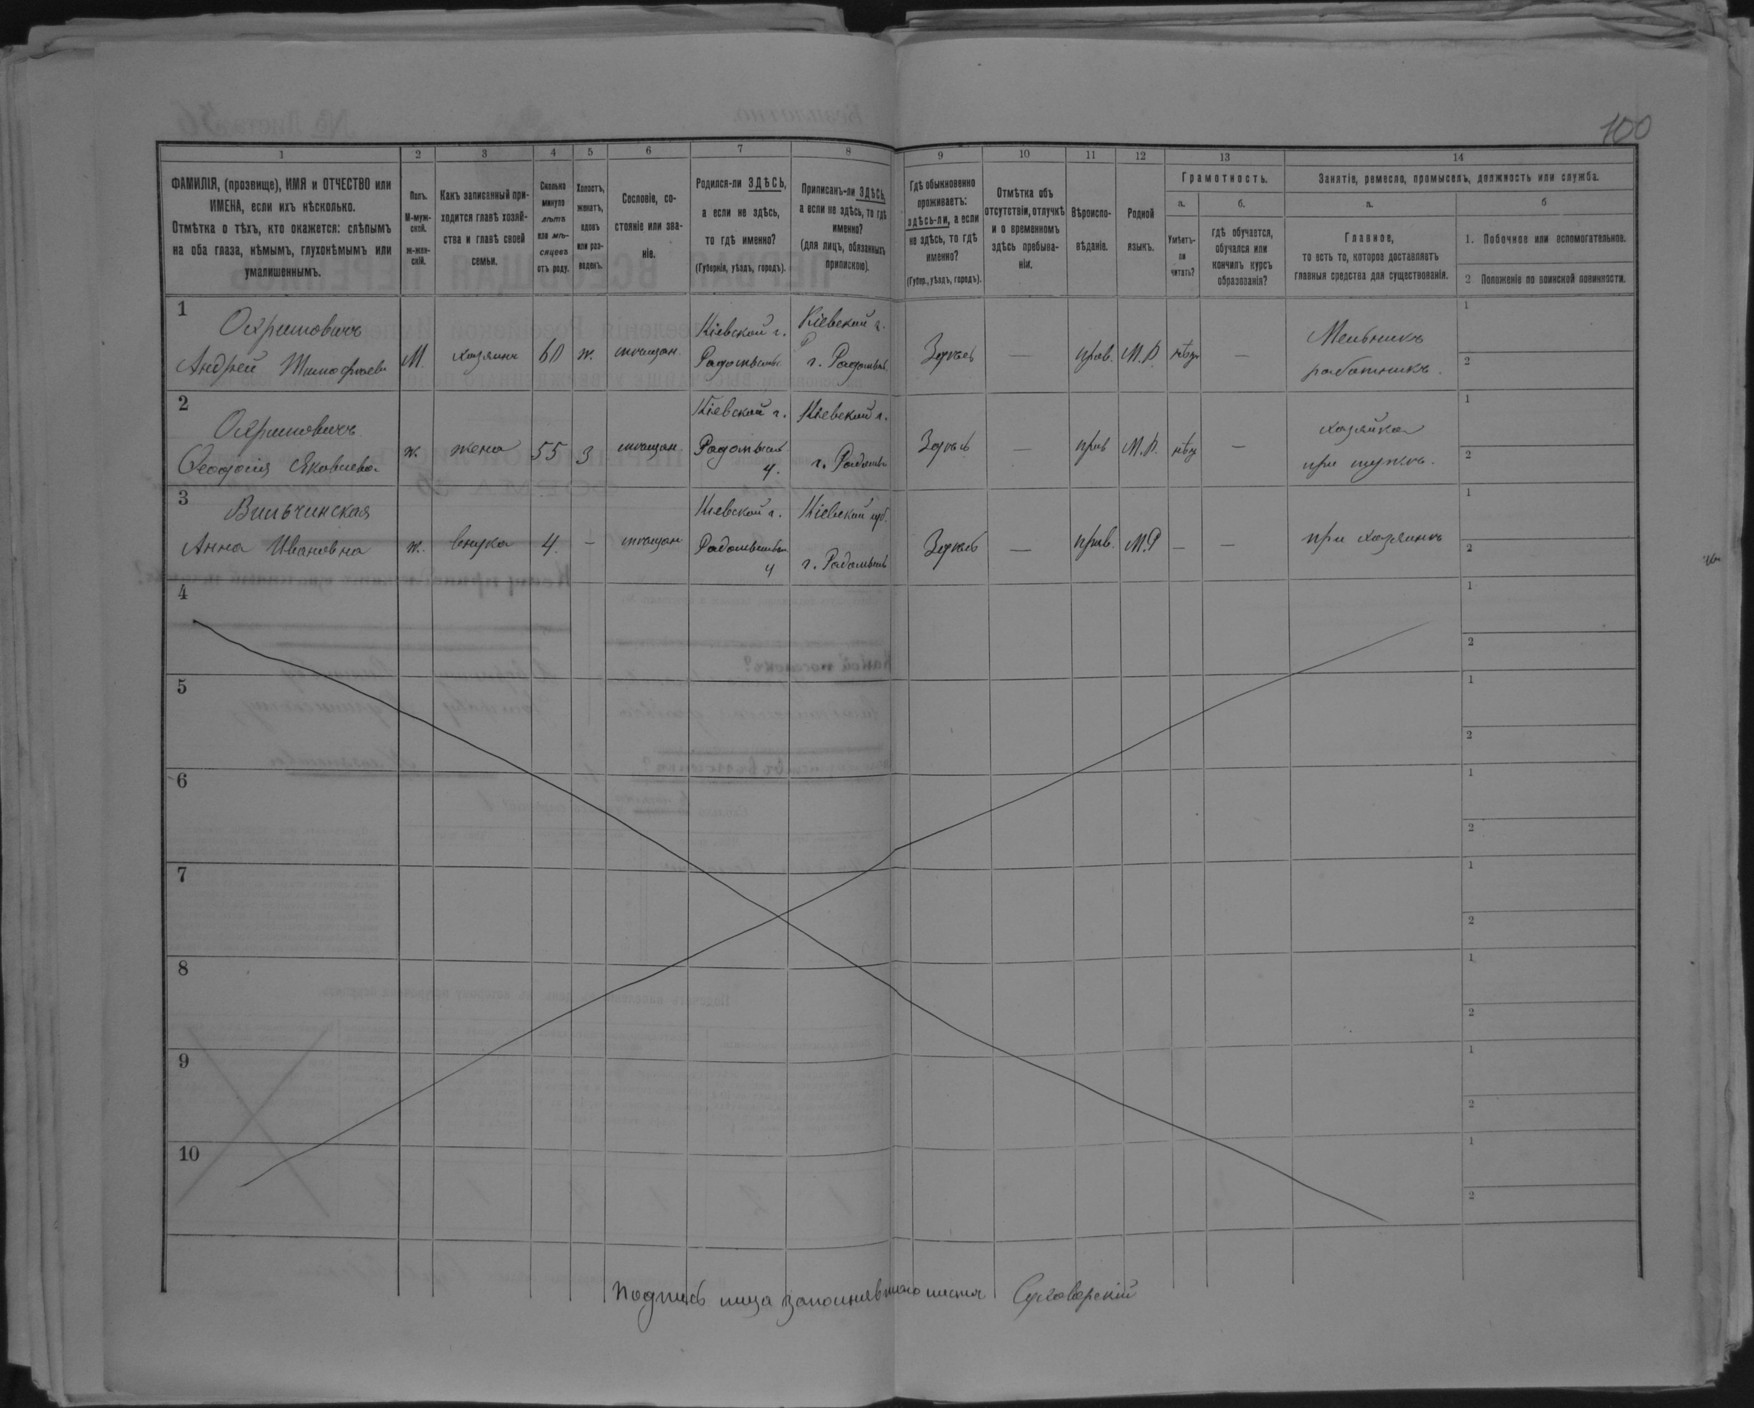 100
1 2 3 4 5 6 7 8 9 10 11 12 13 14
ФАМИЛІЯ, (прозвище), ИМЯ и ОТЧЕСТВО или
ИМЕНА, если ихъ нѣсколько.
Отмѣтка о тѣхъ, кто окажется: слѣпымъ
на оба глаза, нѣмымъ, глухонѣмымъ или
умалишеннымъ.
Полъ.
М-муж-
ской.
ж-жен-
скій.
Какъ записанный при-
ходится главѣ хозяй-
ства и главѣ своей
семьи.
Сколько
минуло
лѣтъ
или мѣ-
сяцевъ
отъ роду.
Холостъ,
женатъ,
вдовъ
или раз-
веденъ.
Сословіе, со-
стояніе или зва-
ніе.
Родился-ли ЗДѢСЬ,
а если не здѣсь,
то гдѣ именно?
(Губернія, уѣздъ, городъ).
Приписанъ-ли ЗДѢСЬ,
а если не здѣсь, то гдѣ
именно?
(для лицъ, обязанныхъ
припискою).
Гдѣ обыкновенно
проживаетъ:
здѣсь-ли, а если
не здѣсь, то гдѣ
именно?
(Губер., уѣздъ, городъ).
Отмѣтка объ
отсутствіи, отлучкѣ
и о временномъ
здѣсь пребыва-
ніи.
Вѣроиспо-
вѣданіе.
Родной
языкъ.
Грамотность.
а.
Умѣетъ-
ли
читать?
б.
гдѣ обучается,
обучался или
кончилъ курсъ
образованія?
Занятіе, ремесло, промыселъ, должность или служба.
а.
Главное,
то есть то, которое доставляетъ
главныя средства для существованія.
б
1. Побочное или вспомогательное.
2 Положеніе по воинской повинности.
1
Охримовичъ
Андрей Тимофѣевъ
М.
хозяинъ
60
ж.
мѣщан.
Кіевской г.
Радомысль
Кіевской г.
г. Радомысль
—
прав.
М.Р.
нѣтъ
—
Мельникъ
работникъ.
1
2
2
Охримовичъ
Феодосія Яковлева
ж.
жена
55
З
мѣщан
Кіевской г.
Радомысль
у.
Кіевской г.
г. Радомысль
—
прав
М.Р.
нѣтъ
—
хозяйка
при мужѣ.
1
2
3
Вильчинская
Анна Ивановна
ж.
внука
4.
—
мѣщан
Кіевской г.
Радомысль
у
Кіевской губ.
г. Радомысль
—
прав.
М.Р
—
—
при хозяинѣ
1
2
4
1
2
5
1
2
6
1
2
7
1
2
8
1
2
9
1
2
10
1
2
Подпись лица заполнявшаго листъ